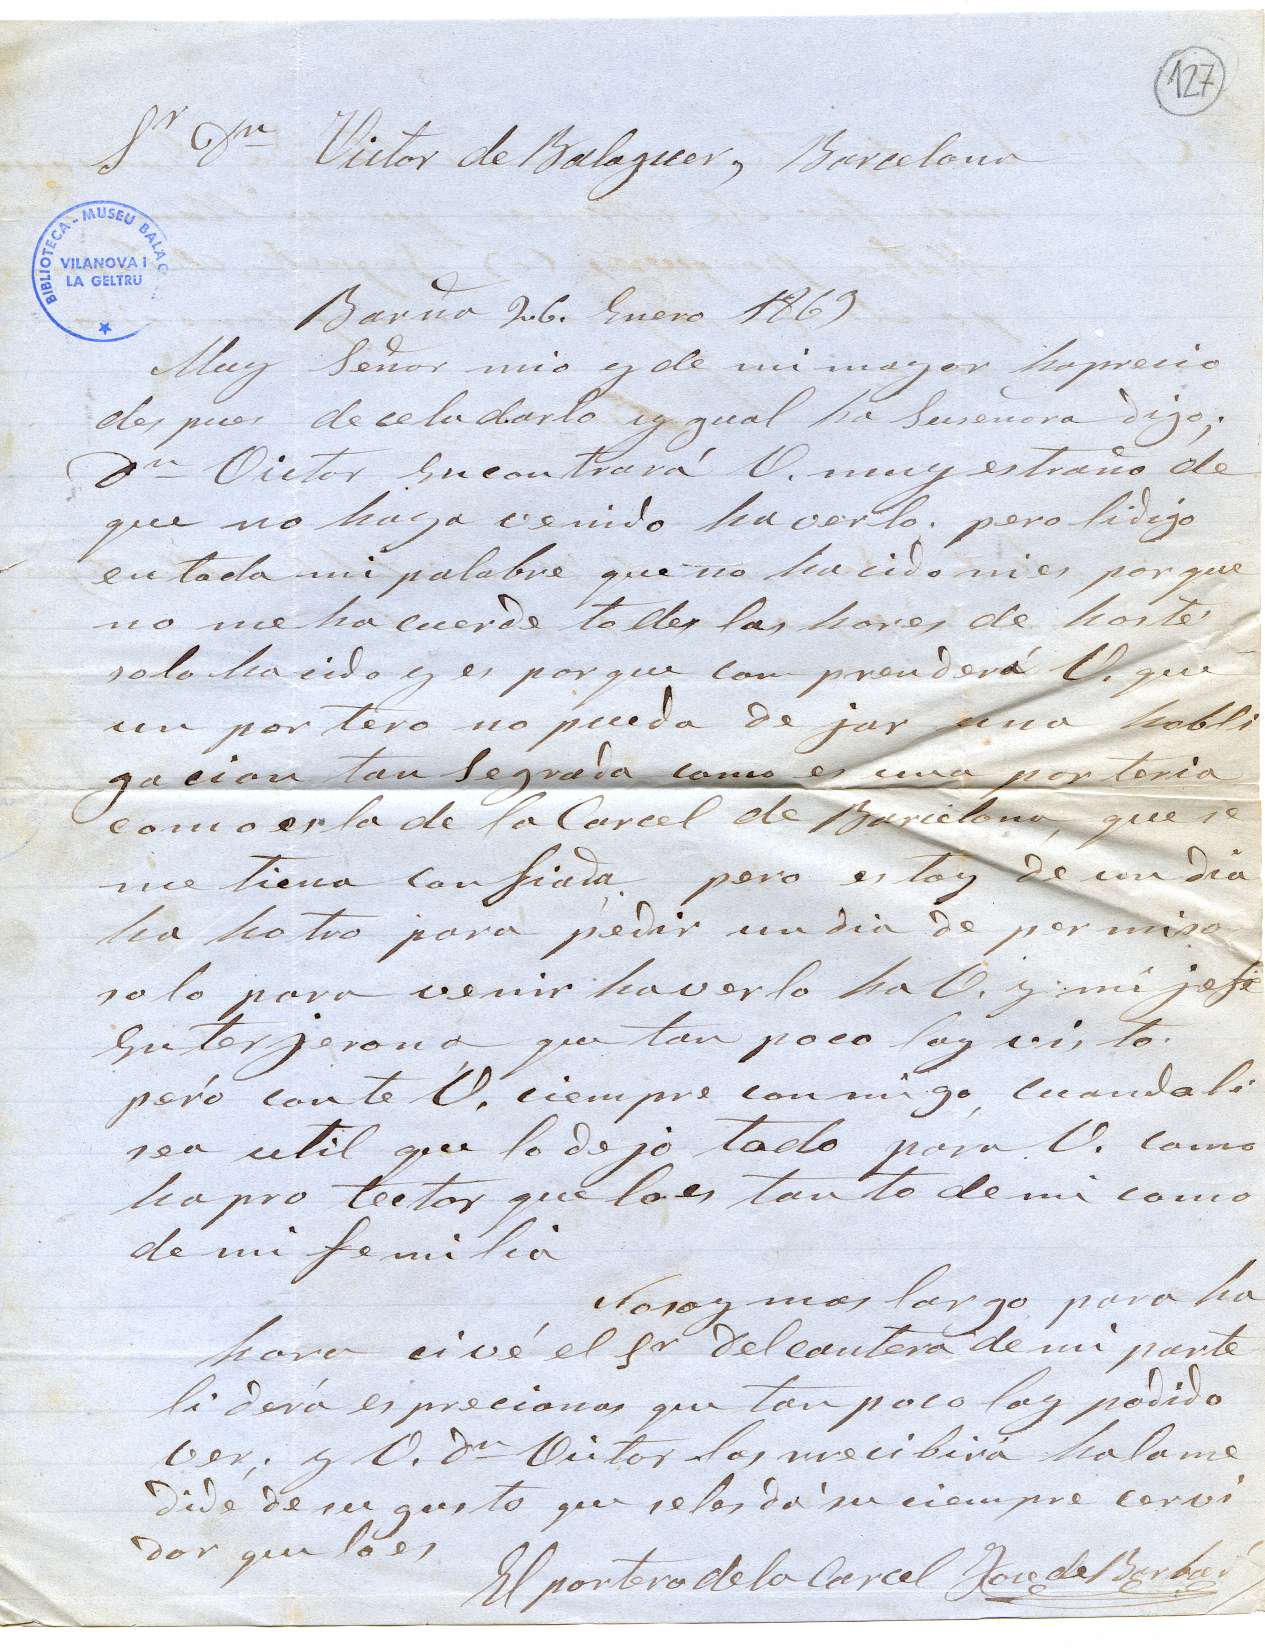 127
Sr Dn Victor de Balaguer, Barcelona
BIBLIOTECA - MUSEU BALAG
VILANOVA I
LA GELTRU
Barña 26. Enero 1869
Muy Señor mio y de mi mayor haprecio
des pues de celudarlo y gual ha Suseñora digo,
Dn Victor Encontrará V. muy estraño de
que no haya venido ha verlo. pero lidigo
en toda mi palabre que no ha cido ni es por que
no me ha cuerde todes las hores de hosté
solo ha cido y es por que com prenderá V. que
un por tero no pueda de jar una habli
gacion tan Segrada como es una por teria
como es la de la Carcel de Barcelona, que se
me tiena con fiada, pero es toy de un dia
ha hotro para pedir un dia de per miso
solo para venir ha verlo ha V. y mi jefe
Gn ter jerona, que tan poco loy vis to.
peró con te V. ciempre con mi go, cuandoli
sea util que lo dejo todo para V. como
ha pro tector que loes tan to de mi como
de mi femilia
No soy mas largo para ha
hora ci vé el Sr del cantera de mi parte
li derá es precionas que tan poco loy podido
ver, y V. Dn Victor las rrecibirá halame
dide de su gusto que selas da su ciempre cervi
dor que loes
El portero de la Carcel Jose de Barbar